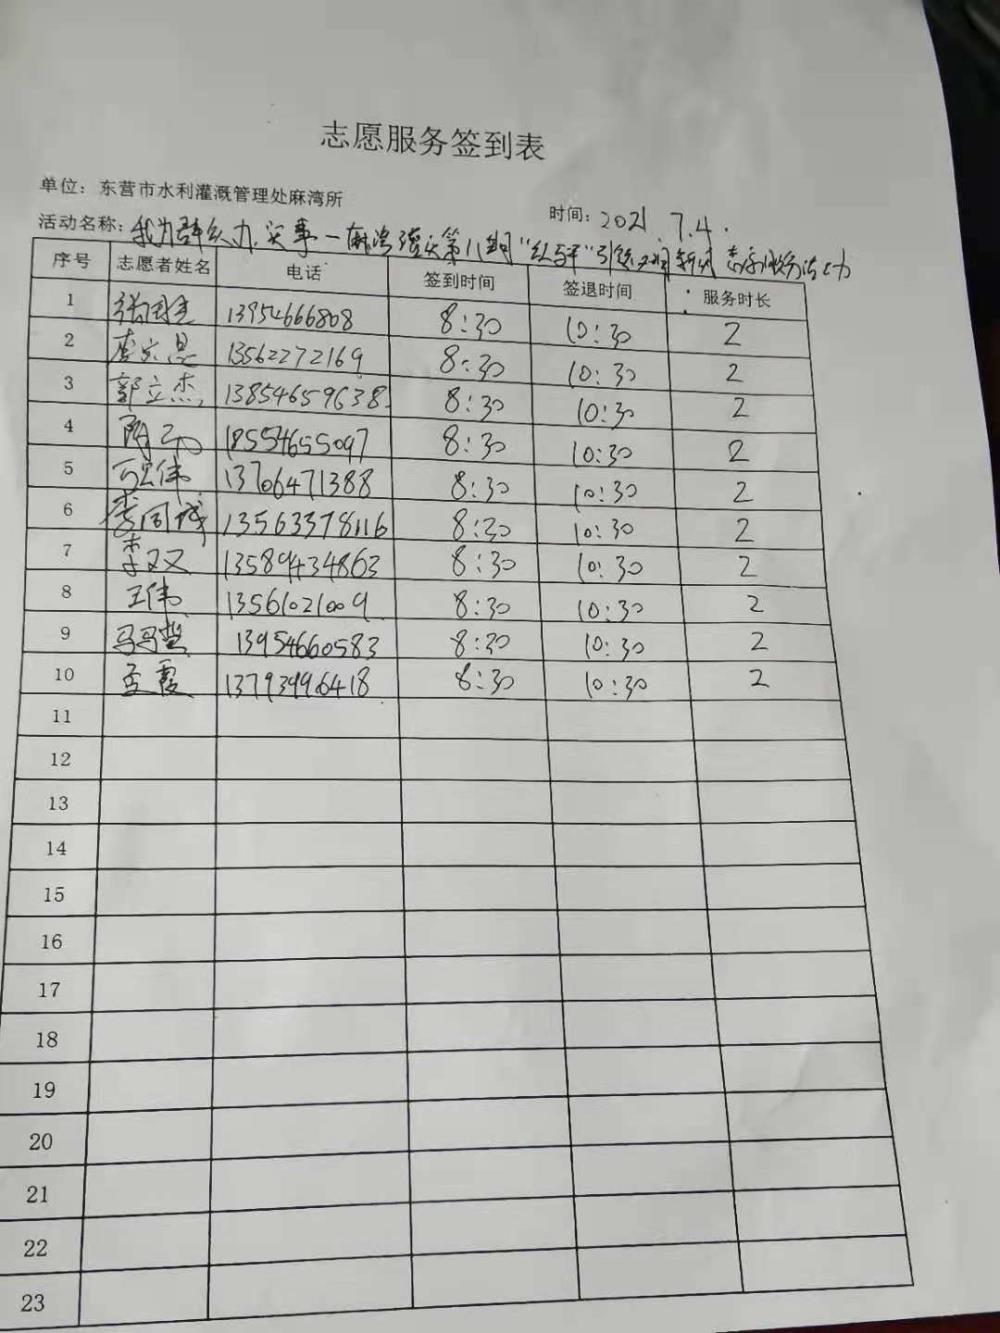 志愿服务签到表
单位：东营市水利灌溉管理处麻湾所
时间：2021.7.4.
活动名称：我为群众办实事一麻湾灌区第八期"红马甲"引领文明新风志愿服务活动
序号 志愿者姓名 电话 签到时间 签退时间 服务时长
1 13954666808 8:30 10:30 2
2 13562272169 8:30 10:30 2
3 郭立杰 13854659638 8:30 10:30 2
4 18554655097 8:30 10:30 2
5 13706471388 8:30 10:30 2
6 13563378116 8:30 10:30 2
7 李双双 13589434863 8:30 10:30 2
8 王伟 13561021009 8:30 10:30 2
9 13954660583 8:30 10:30 2
10 孟霞 13793996418 8:30 10:30 2
11
12
13
14
15
16
17
18
19
20
21
22
23